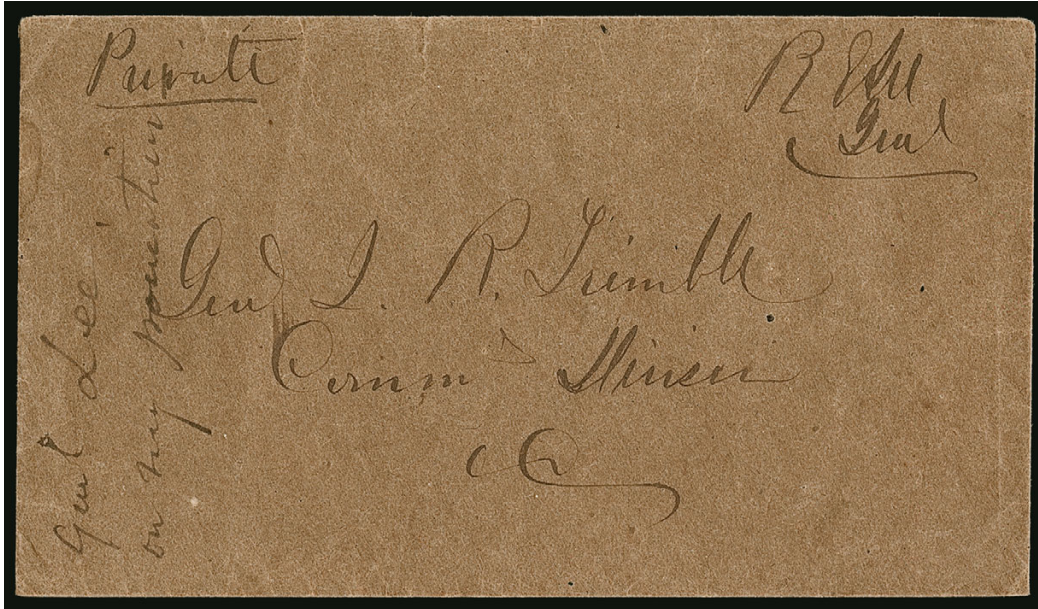 Private
R E Lee
Genl
Genl I. R. Trimble
Commd Division
&
Genl Lee
on my promotion